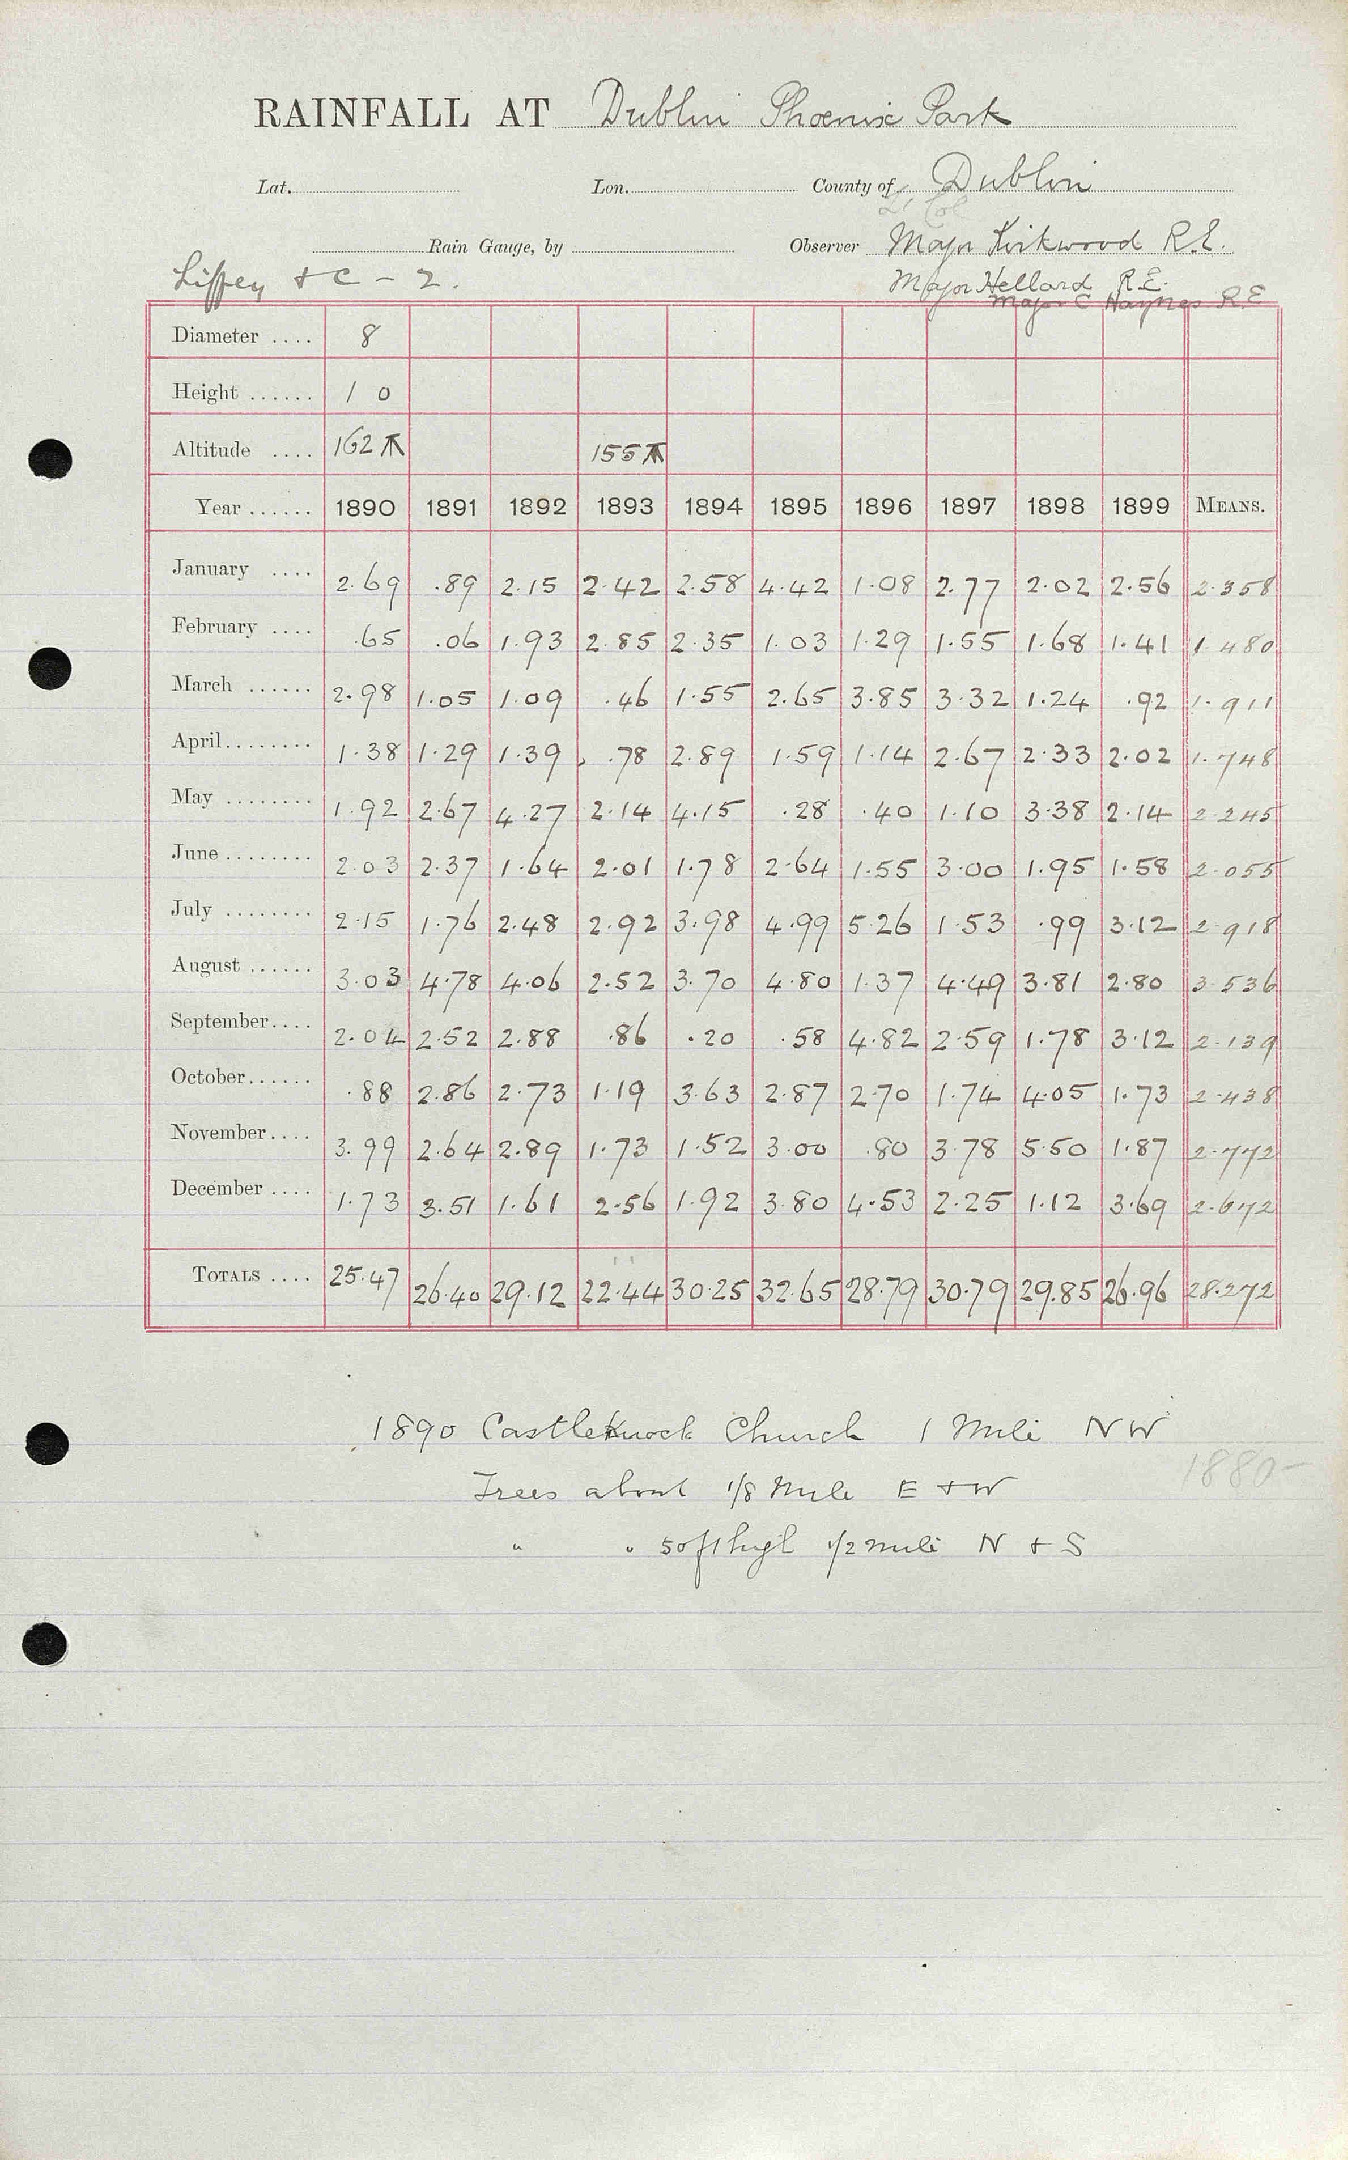 RAINFALL AT Dublin Phoenix Park
Lat. Lon. County of Dublin
Lt Col
Rain Gauge, by Observer Major Kirkwood R.E.
Liffey + C - 2. Major Hellard R.E.
Major C Haynes R.E
Diameter .... 8
Height ...... 1 0
Altitude .... 162 155
Year ...... 1890 1891 1892 1893 1894 1895 1896 1897 1898 1899 MEANS.
January .... 2.69 .89 2.15 2.42 2.58 4.42 1.08 2.77 2.02 2.56 2.358
February .... .65 .06 1.93 2.85 2.35 1.03 1.29 1.55 1.68 1.41 1.480
March ...... 2.98 1.05 1.09 .46 1.55 2.65 3.85 3.32 1.24 .92 1.911
April ........ 1.38 1.29 1.39 .78 2.89 1.59 1.14 2.67 2.33 2.02 1.748
May ........ 1.92 2.67 4.27 2.14 4.15 .28 .40 1.10 3.38 2.14 2.245
June ........ 2.03 2.37 1.64 2.01 1.78 2.64 1.55 3.00 1.95 1.58 2.055
July ........ 2.15 1.76 2.48 2.92 3.98 4.99 5.26 1.53 .99 3.12 2.918
August ...... 3.03 4.78 4.06 2.52 3.70 4.80 1.37 4.49 3.81 2.80 3.536
September .... 2.04 2.52 2.88 .86 .20 .58 4.82 2.59 1.78 3.12 2.139
October ...... .88 2.86 2.73 1.19 3.63 2.87 2.70 1.74 4.05 1.73 2.438
November .... 3.99 2.64 2.89 1.73 1.52 3.00 .80 3.78 5.50 1.87 2.772
December .... 1.73 3.51 1.61 2.56 1.92 3.80 4.53 2.25 1.12 3.69 2.672
TOTALS .... 25.47 26.40 29.12 22.44 30.25 32.65 28.79 30.79 29.85 26.96 28.272
1890 Castleknock Church 1 Mile NW
1880-
Trees about 1/8 Mile E + W
" " 50ft high 1/2 mile N + S